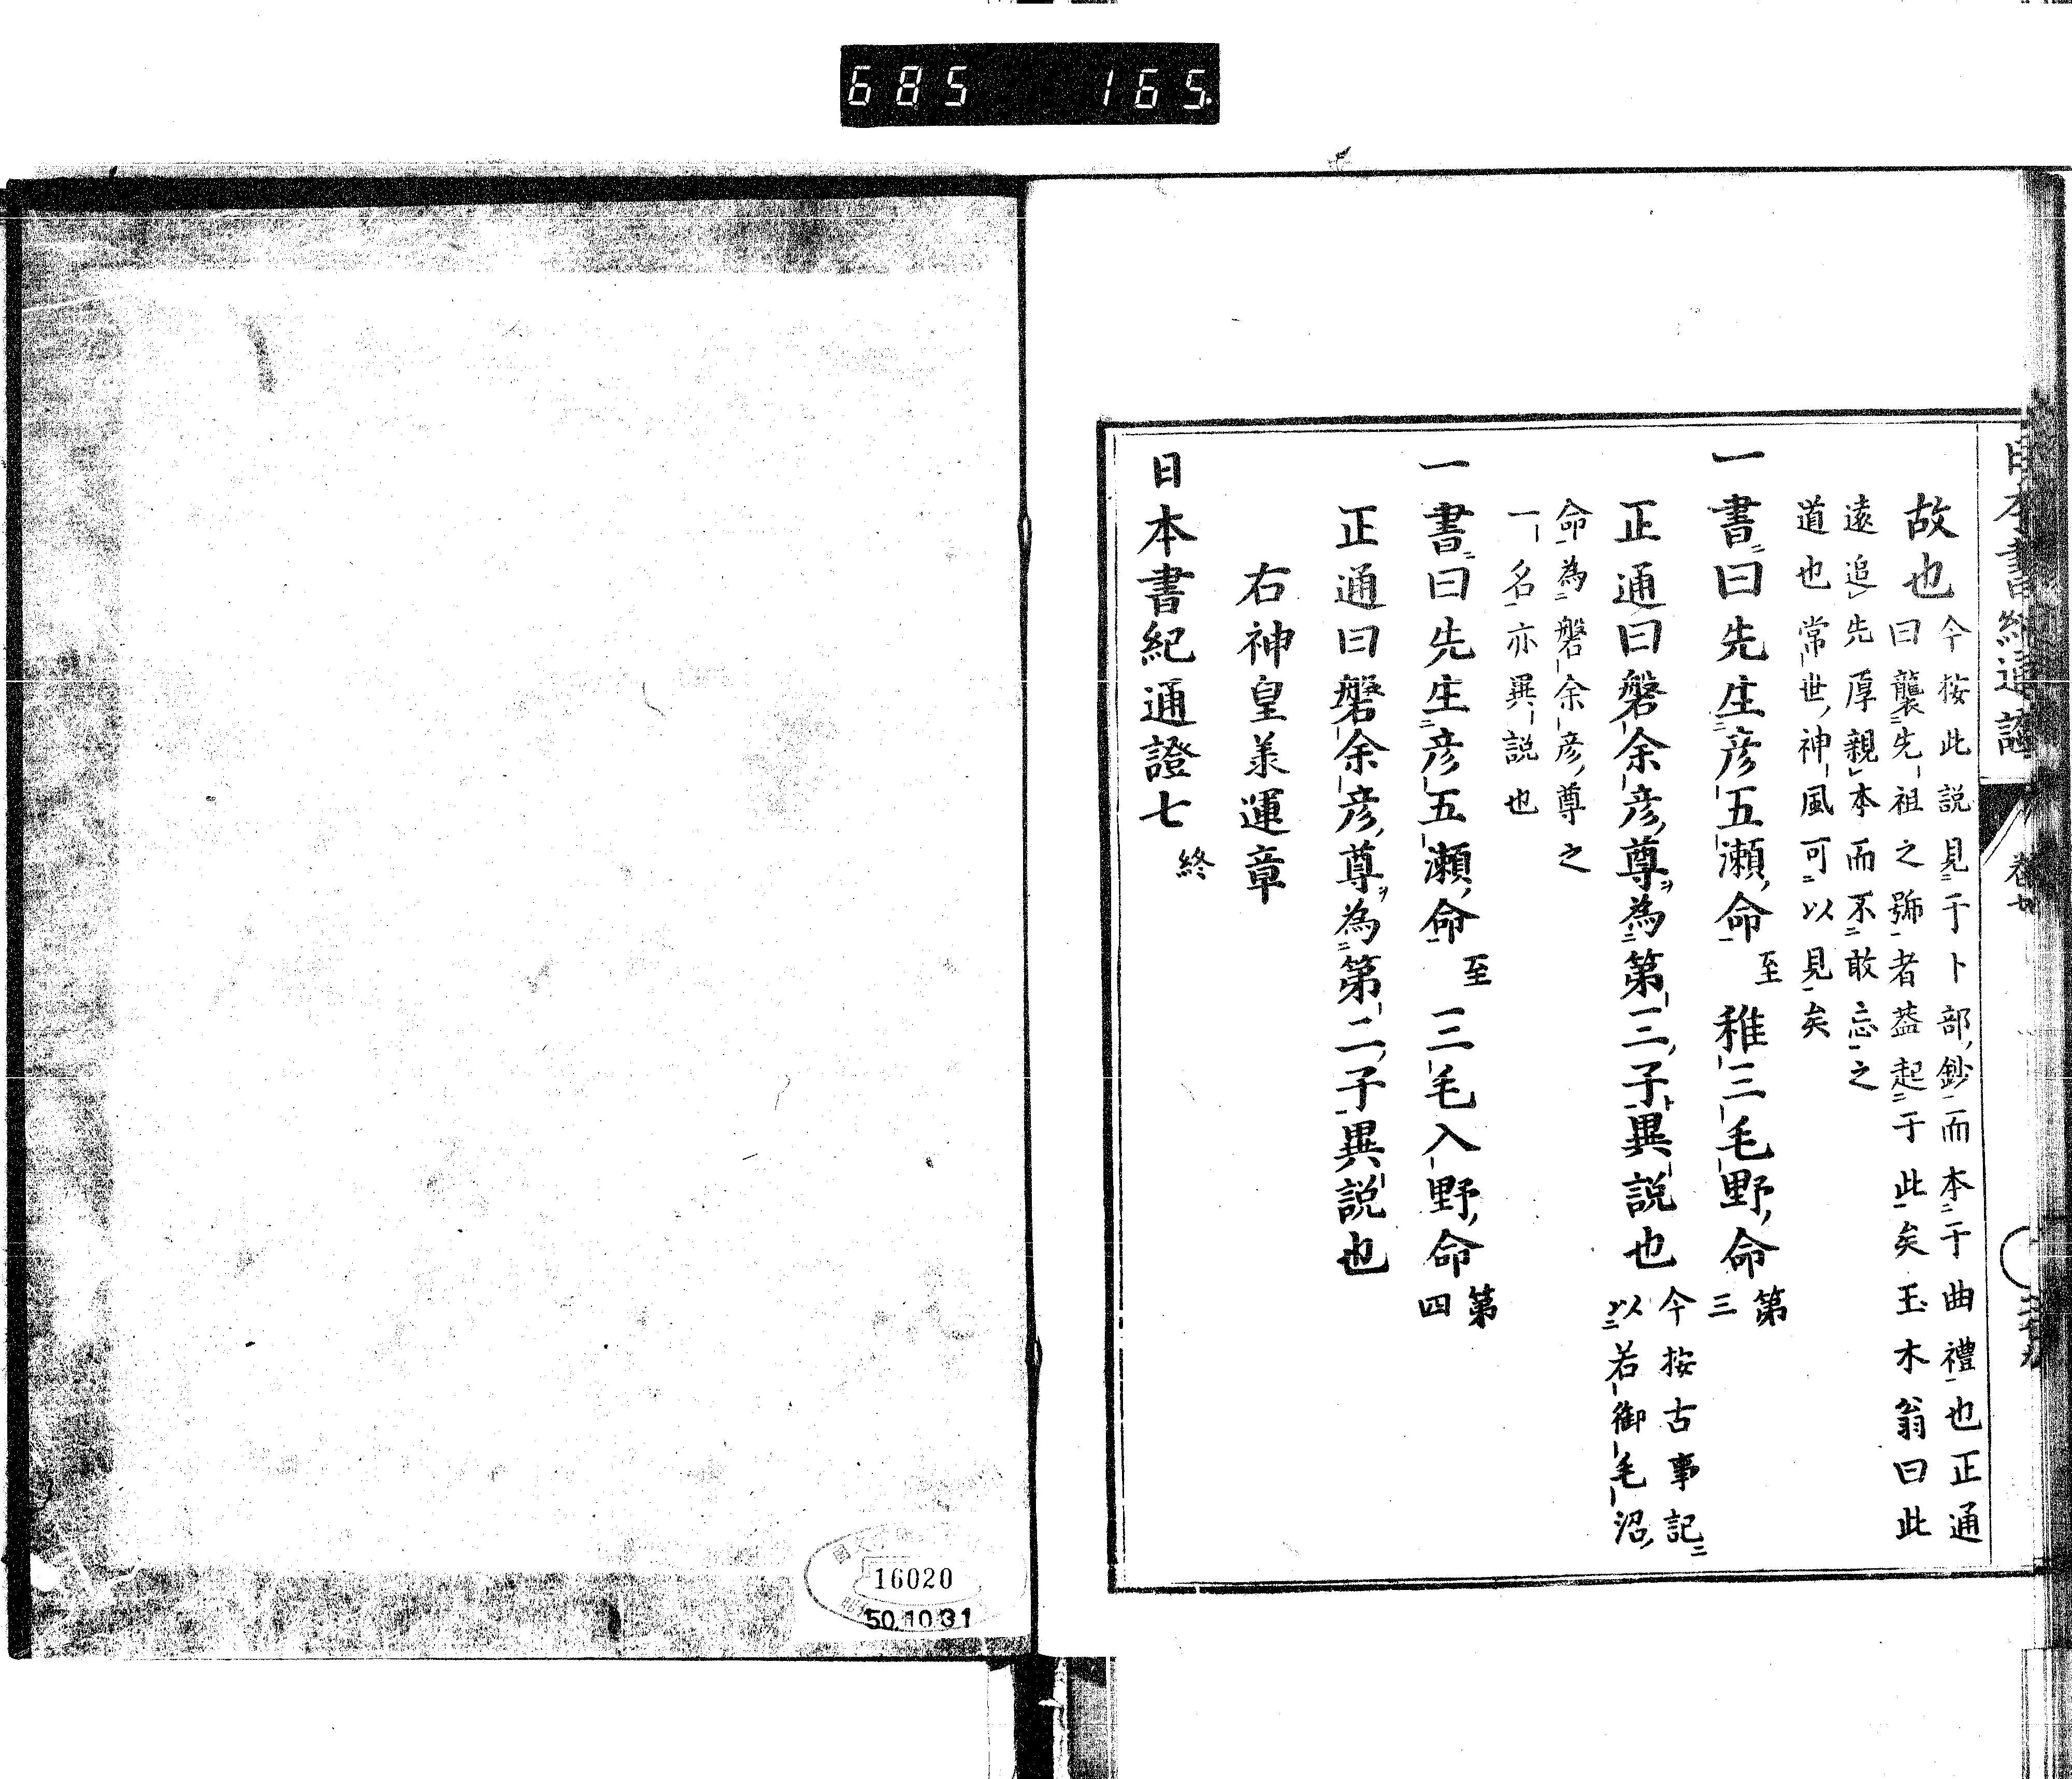 685 165
日本書紀通證
卷七
故也
今按此説見于卜部鈔而本于曲禮也正通
曰襲先祖之號者葢起于此矣玉木翁曰此
遠追先厚親本而不敢忘之
道也常世神風可以見矣
一書曰先生彦五瀬命至稚三毛野命第三
正通曰磐余彦尊ヲ為第三子ト異説也
今按古事記
以若御毛沼
命為磐余彦尊之
一名亦異説也
一書曰先生彦五瀬命至三毛入野命第四
正通曰磐余彦尊ヲ為第二子異説也
右神皇羕運章
日本書紀通證七終
16020
50.10.31